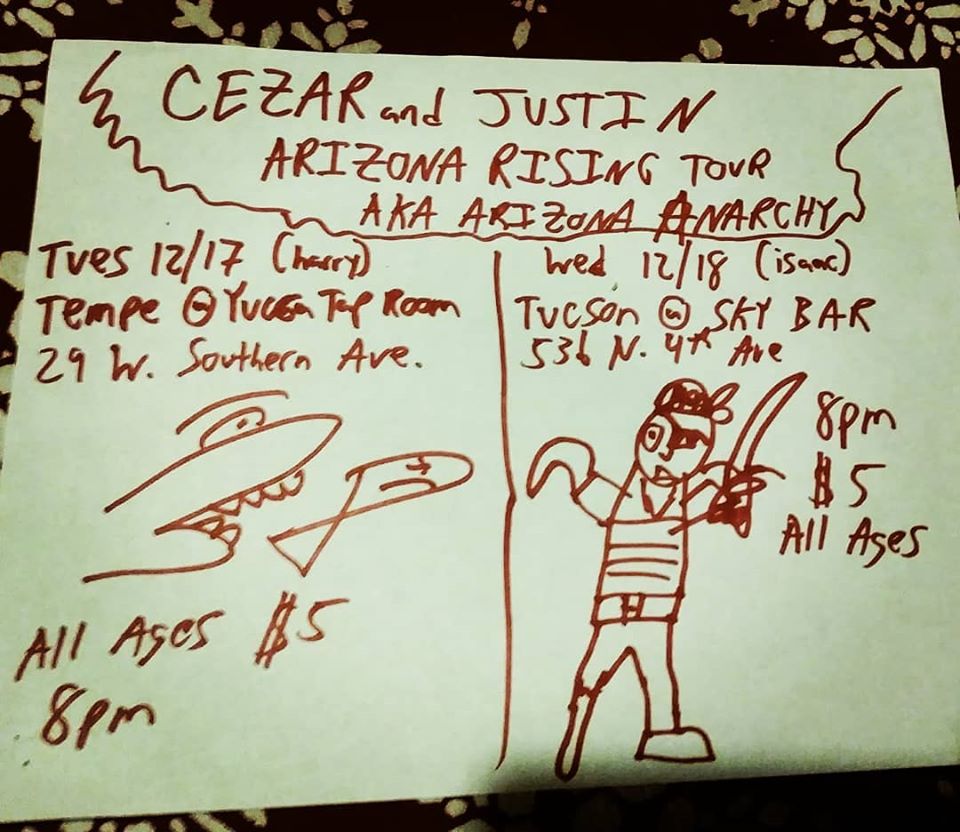 CEZAR and JUSTIN
ARIZONA RISING TOUR
AKA ARIZONA ANARCHY
Tues 12/17 (harry)
Tempe @ Yucca Tap Room
29 W. Southern Ave.
All Ages $5
8pm
Wed 12/18 (isaac)
Tucson @ SKY BAR
536 N. 4th Ave
8pm
$5
All Ages